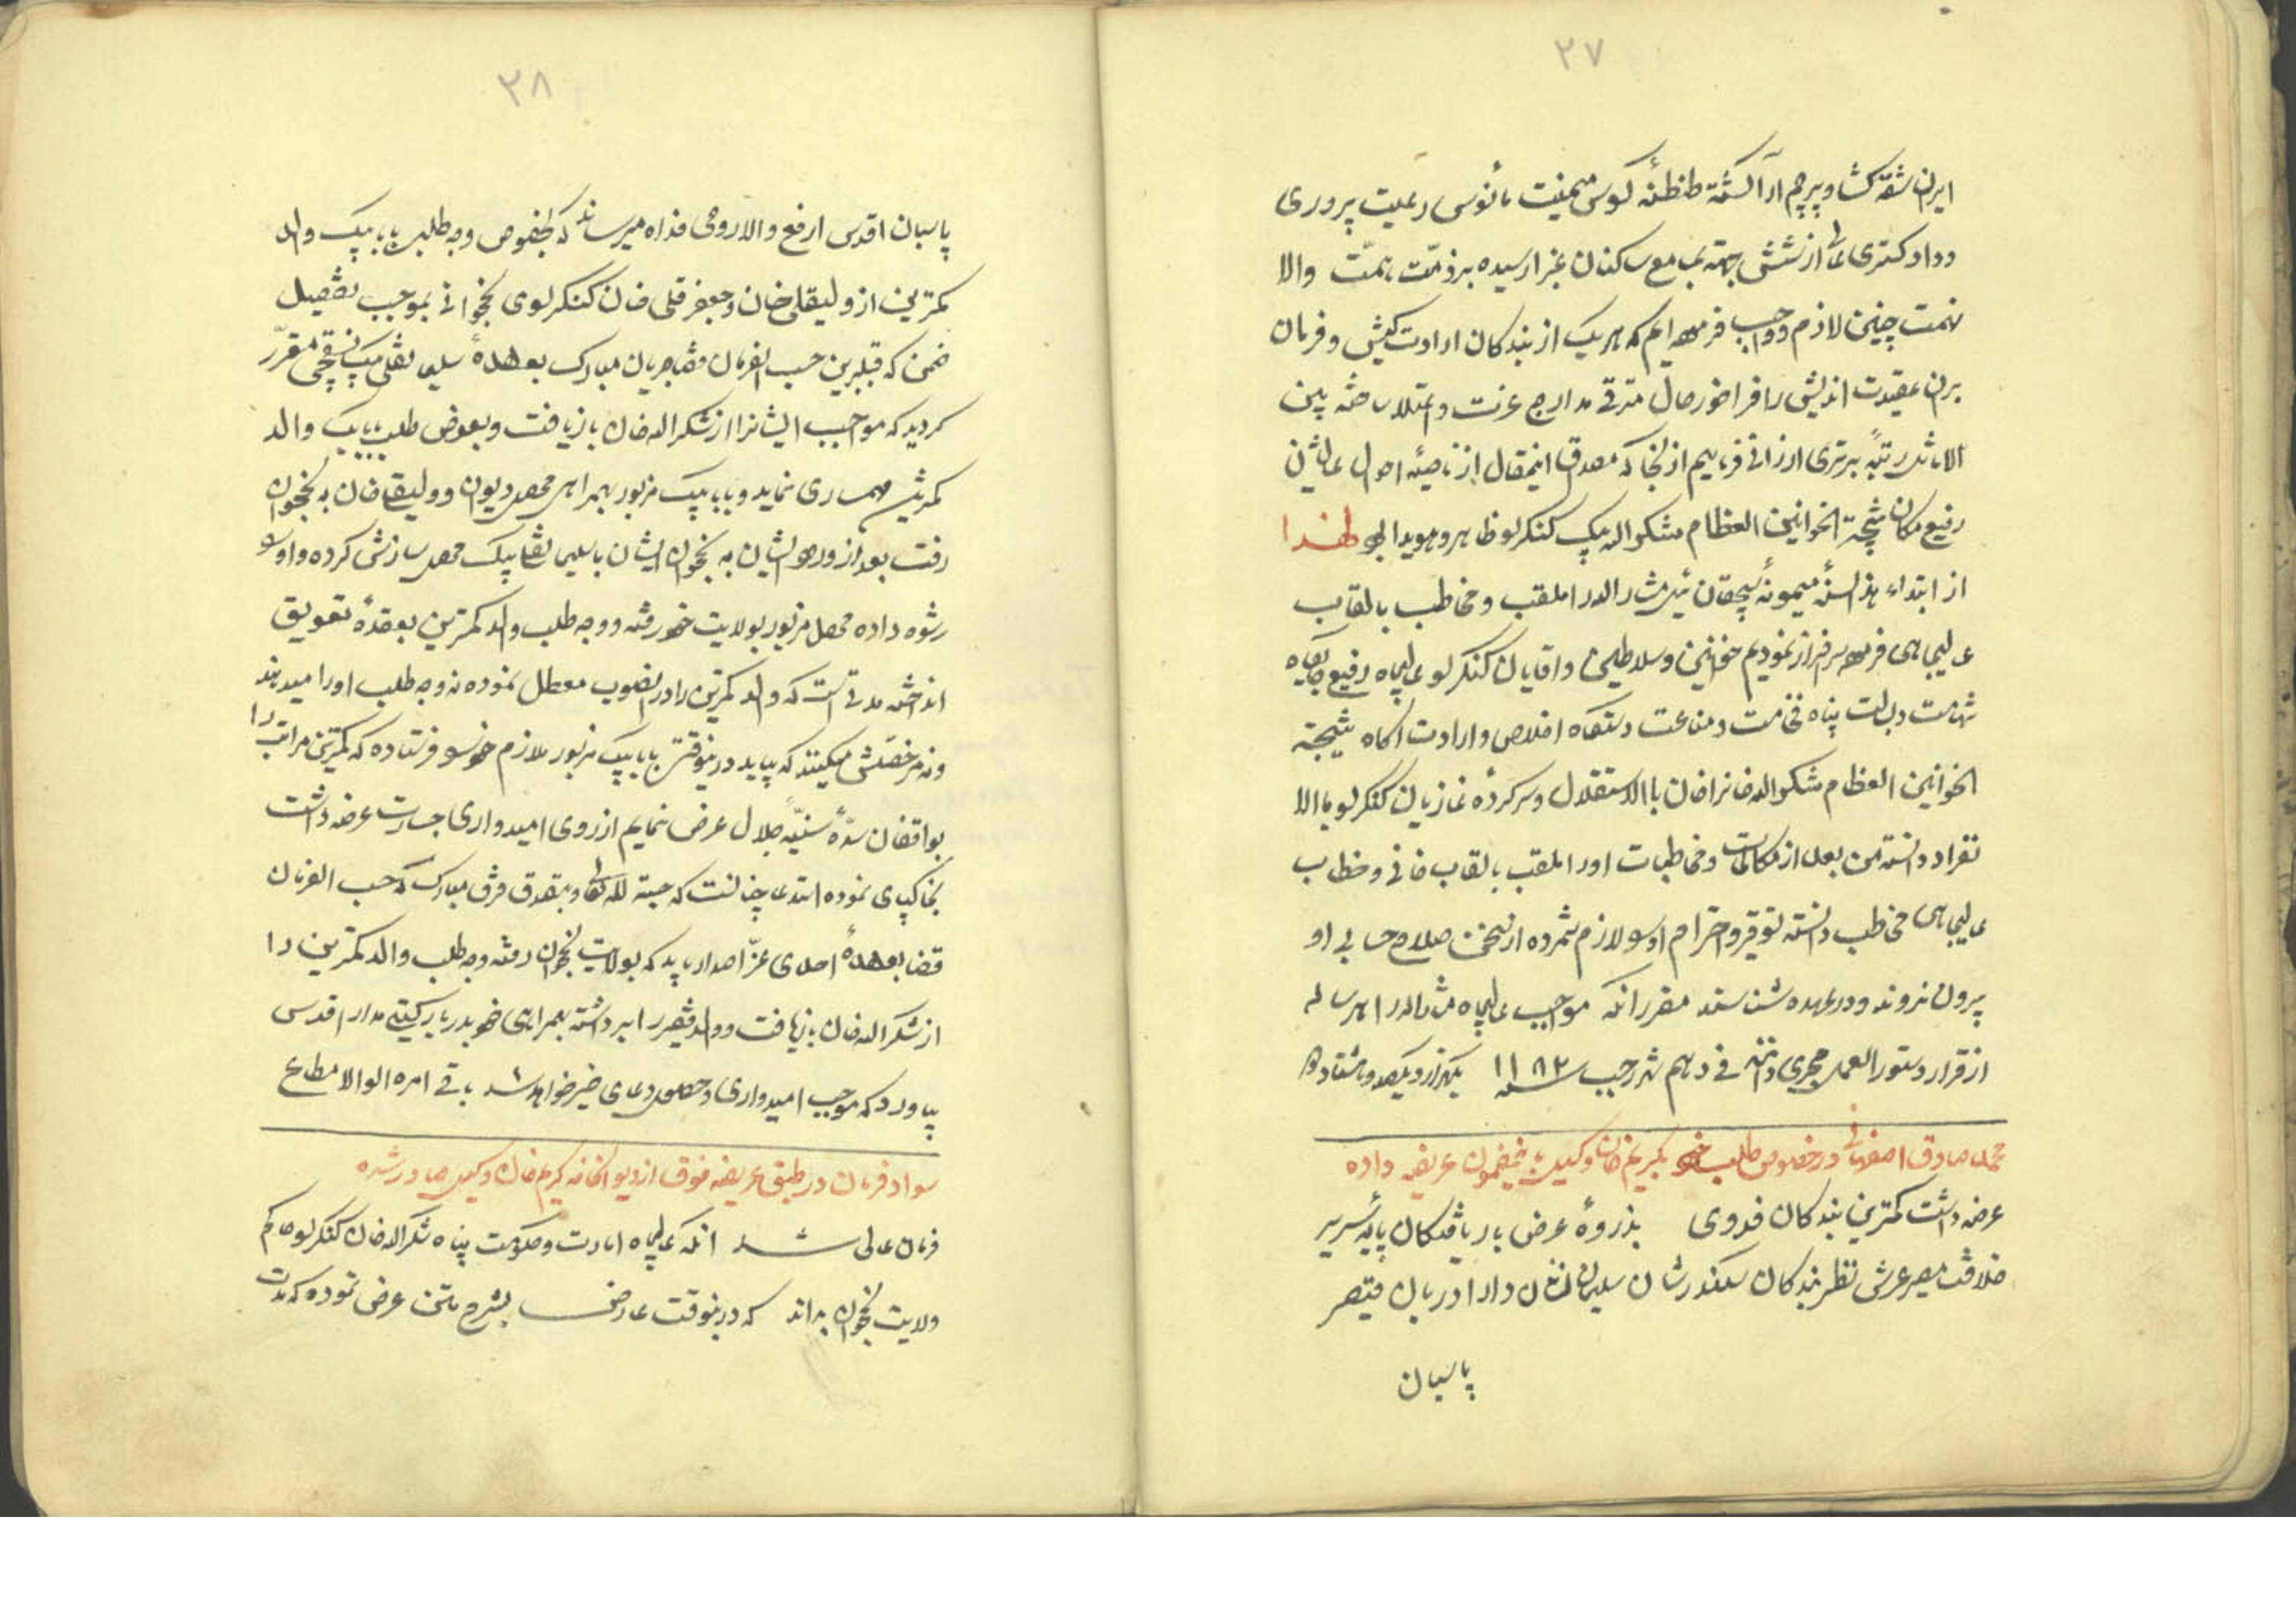 ۲۷
ایران شقه کشا و پرچم آرا کشته طنطنهٔ کوس میمنت مأنوس رعیت پروری
و داد کستری از شش جهة بمجامع ساکنان غبرا رسیده بر ذمّت همّت والا
نهمت چنین لازم و واجب فرموده‌ایم که هریک از بندکان ارادت کیش و فرمان
بران عقیدت اندیش را فراخور حال مترقی مدارج عزت و اعتلا ساخته بین
الاماثل رتبهٔ برتری ارزانی فرماییم از آنجا که مصدق اینمقال از ناصیهٔ احوال عالیشان
رفیع مکان نتیجة الخوانین العظام شکرالله بیک کنکرلو ظاهر و هویدا بود لهذا
از ابتداء هذه السنهٔ میمونهٔ ئیل مشارالیه را ملقب و مخاطب بالقاب
عالیجاهی فرموده سرفراز نمودیم خوانین و سلاطین و آقایان کنکرلو عالیجاه رفیع جایکاه
شهامت و بسالت پناه فخامت و مناعت دستکاه اخلاص و ارادت آکاه نتیجة
الخوانین العظام شکرالله خانرا خان باالاستقلال و سرکردهٔ غازیان کنکرلو باالا
نفراد دانسته من بعد از مکاتبات و مخاطبات اورا ملقب بالقاب خانی و خطاب
عالیجاهی مخاطب دانسته توقیر و احترام او را لازم شمرده از سخن صلاح حسابی او
بیرون نروند و در عهده شناسند مقرر آنکه مواجب عالیجاه مشارالیه را هر ساله
از قرار دستورالعمل مجری دانند فی دهم شهر رجب سنه ۱۱۸۲ یکهزار و یکصد و هشتاد و دو
محمد صادق اصفهانی در خصوص طلب خود بکریم خان وکیل باینمضمون عریضه داده
عرضه داشت کمترین بندکان فدوی بذروهٔ عرض باریافتکان پایهٔ سریر
خلافت مصیر عرش نظیر بندکان سکندر شان سلیمان دارا دربان قیصر
پاسبان
۲۸
پاسبان اقدس ارفع والا روحی فداه میرساند که بخصوص وجه طلب بابا بیک والد
کمترین از ولیقلی خان و جعفرقلی خان کنکرلوی نخجوانی بموجب تفصیل
ضمن که قبل برین حسب الفرمان قضا جریان مبارک بعهدهٔ سلیمانقلی بیک نسقچی مقرّر
کردید که مواجب ایشانرا از شکرالله خان بازیافت و بعوض طلب بابا بیک والد
کمرترین مهمسازی نماید و بابا بیک مزبور بهمراهی محصل دیوان و ولیقلی خان به نخجوان
رفت بعد از ورود ایشان به نخجوان ایشان با سلیمانقلی بیک محصل سازش کرده و او را
رشوه داده محصل مزبور بولایت خود رفته و وجه طلب والد کمترین بعقدهٔ تعویق
انداخته مدتی است که والد کمترین را در آنصوب معطل نموده نه وجه طلب اورا میدهند
و نه مرخصش میکنند که بیاید درینوقت بابا بیک مزبور ملازم خود را فرستاده که کمترین مراتب را
بواقفان سدّهٔ سنیّهٔ جلال عرض نمایم از روی امیدواری جسارت عرضه داشت
بخاکپای نموده استدعا چنانست که حسبة لله تعالی و بتصدق فرق مبارک که حسب الفرمان
قضا بعهدهٔ احدی عزّ اصدار یابد که بولایت نخجوان رفته وجه طلب والد کمترین را
از شکرالله خان بازیافت و والد حقیر را برداشته بهمراهی خود بدربار کیتی مدار اقدس
بیاورد که موجب امیدواری و حصول دعای خیر خواهد شد باقی امره الوالا مطاع
سواد فرمان در طبق عریضه فوق از دیوانخانه کریم خان وکیل صادر شده
فرمان عالی شد آنکه عالیجاه امارت و حکومت پناه شکرالله خان کنکرلو حاکم
ولایت نخجوان بداند که درینوقت عارض بشرح متن عرض نموده که مدت